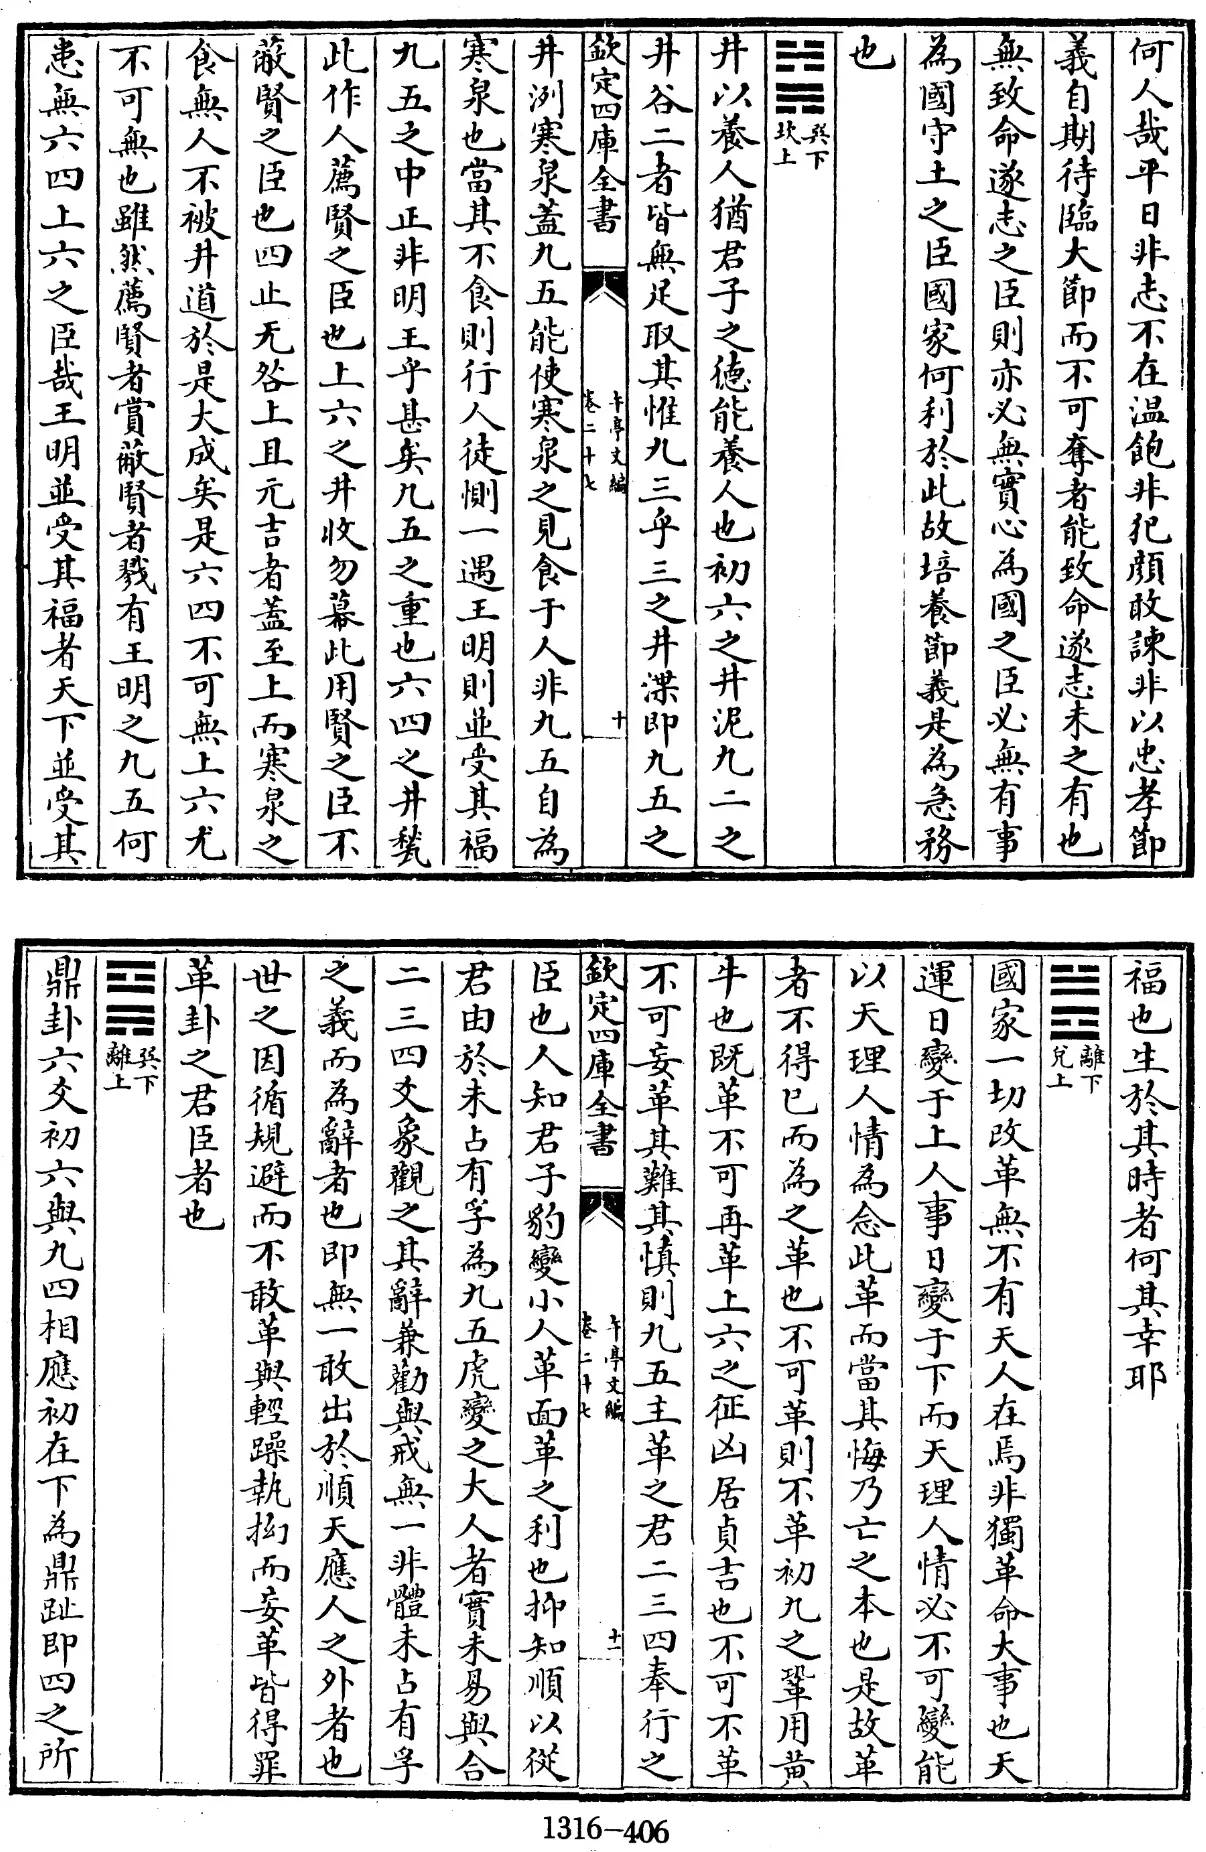 何人哉平日非志不在温飽非犯顔敢諫非以忠孝節
義自期待臨大節而不可奪者能致命遂志未之有也
無致命遂志之臣則亦必無實心為國之臣必無有事
為國守土之臣國家何利於此故培養節義是為急務
也
巽下
坎上
井以養人猶君子之德能養人也初六之井泥九二之
井谷二者皆無足取其惟九三乎三之井渫即九五之
欽定四庫全書
午亭文編
卷二十七
十
井洌寒泉蓋九五能使寒泉之見食于人非九五自為
寒泉也當其不食則行人徒惻一遇王明則並受其福
九五之中正非明王乎甚矣九五之重也六四之井甃
此作人薦賢之臣也上六之井收勿幕此用賢之臣不
蔽賢之臣也四止无咎上且元吉者蓋至上而寒泉之
食無人不被井道於是大成矣是六四不可無上六尤
不可無也雖然薦賢者賞蔽賢者戮有王明之九五何
患無六四上六之臣哉王明並受其福者天下並受其
福也生於其時者何其幸耶
離下
兌上
國家一切改革無不有天人在焉非獨革命大事也天
運日變于上人事日變于下而天理人情必不可變能
以天理人情為念此革而當其悔乃亡之本也是故革
者不得已而為之革也不可革則不革初九之鞏用黄
牛也既革不可再革上六之征凶居貞吉也不可不革
不可妄革其難其慎則九五主革之君二三四奉行之
欽定四庫全書
午亭文編
卷二十七
十一
臣也人知君子豹變小人革面革之利也抑知順以從
君由於未占有孚為九五虎變之大人者實未易與合
二三四爻象觀之其辭兼勸與戒無一非體未占有孚
之義而為辭者也即無一敢出於順天應人之外者也
世之因循規避而不敢革與輕躁執拗而妄革皆得罪
革卦之君臣者也
巽下
離上
鼎卦六爻初六與九四相應初在下為鼎趾即四之所
1316-406